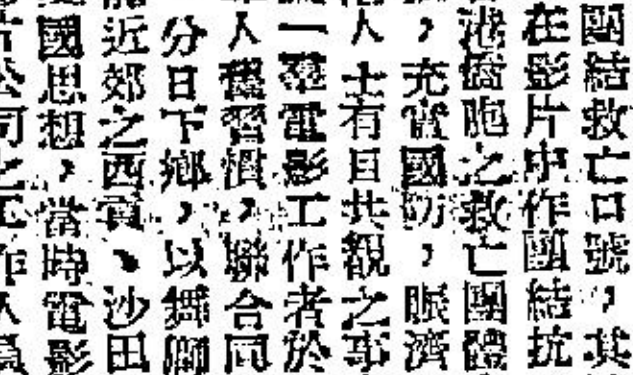 團結救亡口號，其
在影片中作團結抗
港僑胞之救亡團體
，充實國防，賑濟
人士有目共覩之事
一電影工作者於
人舊習慣，聯合同
分日下鄉，以舞
近郊之西貢、沙田
國思想，當時電影
公司之工作人員